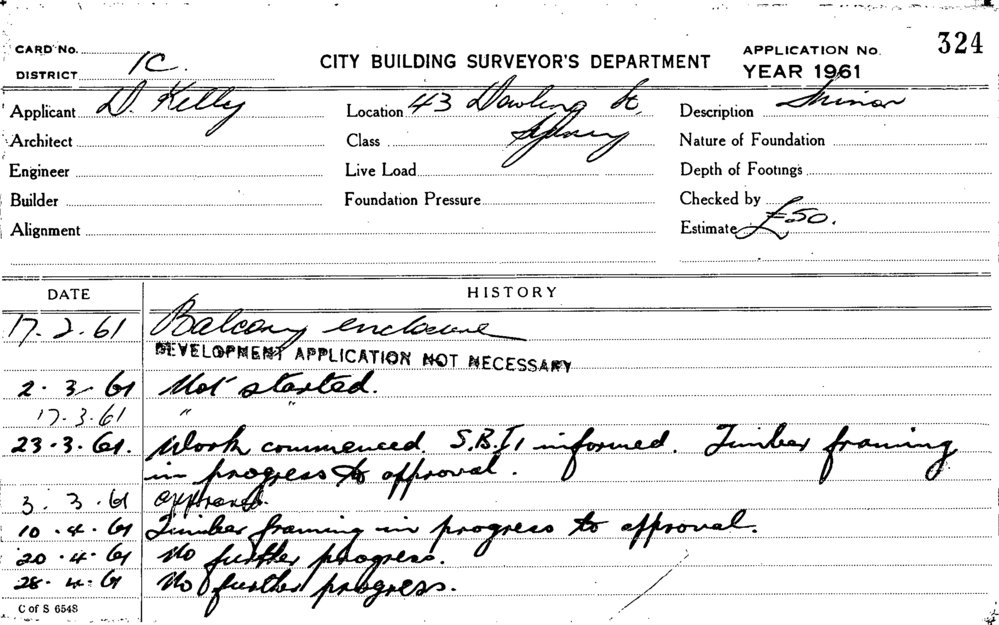 CARD No. 
DISTRICT 1C.
CITY BUILDING SURVEYOR'S DEPARTMENT
APPLICATION No. 324
YEAR 1961
Applicant D. Kelly
Location 43 Dowling St,
Description Minor
Architect
Class Sydney
Nature of Foundation
Engineer
Live Load
Depth of Footings
Builder
Foundation Pressure
Checked by
Alignment
Estimate £50.
DATE HISTORY
17.2.61 Balcony enclosure
DEVELOPMENT APPLICATION NOT NECESSARY
2.3.61 Not started.
17.3.61 " "
23.3.61. Work commenced. S.B.I. informed. Timber framing
in progress to approval.
3.3.61 approved.
10.4.61 Timber framing in progress to approval.
20.4.61 No further progress.
28.4.61 No further progress.
C of S 6548